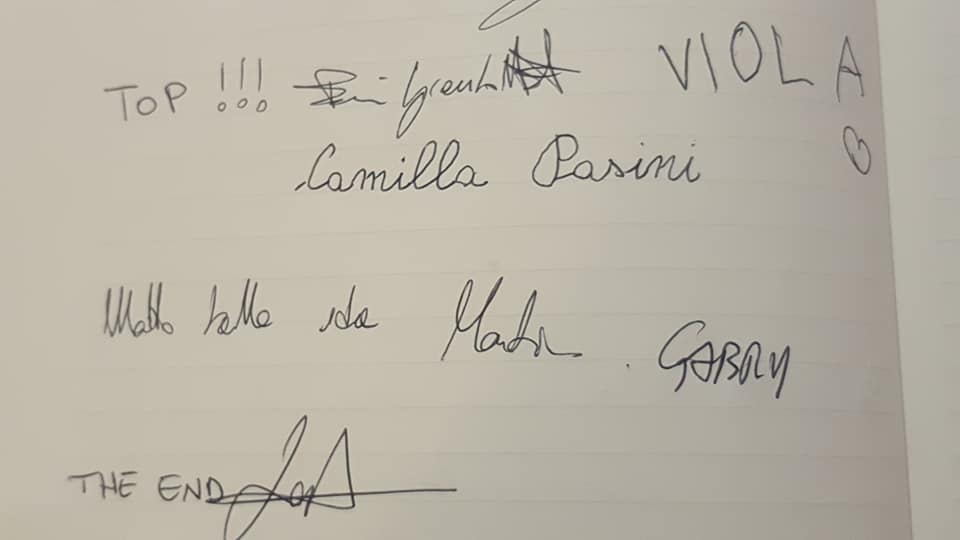 TOP !!! VIOLA
Camilla Pasini
Molto bella idea Martin
GABRY
THE END